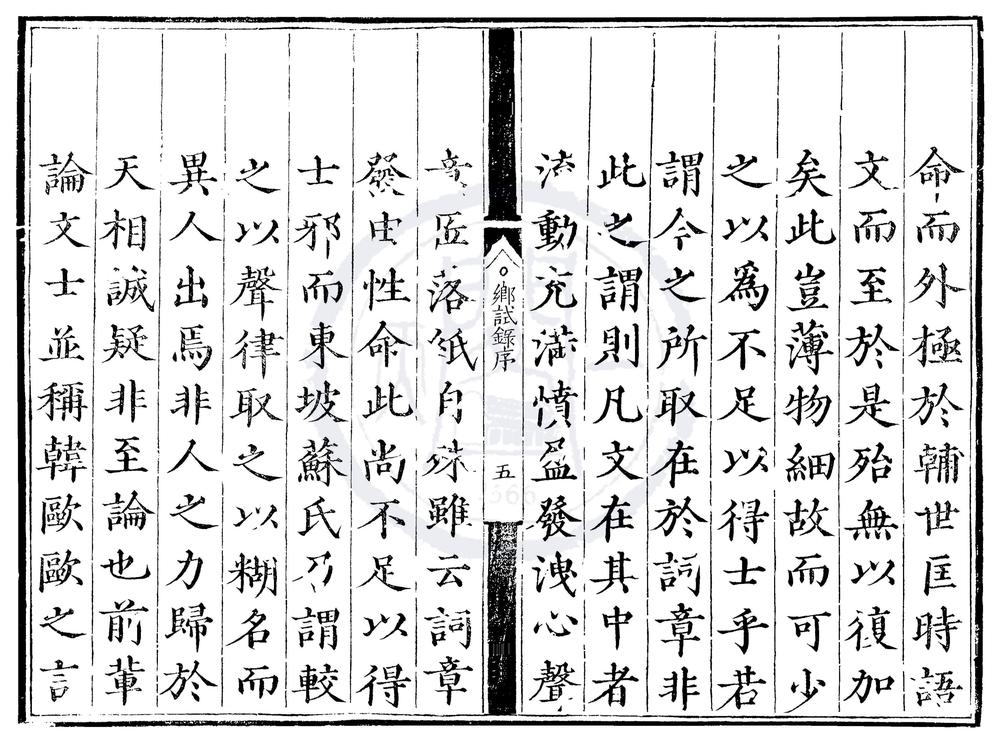 命而外極於輔世匡時語
文而至於是殆無以復加
矣此豈薄物細故而可少
之以爲不足以得士乎若
謂今之所取在於詞章非
此之謂則凡文在其中者
流動充滿憤盈發洩心聲
鄉試錄序
五
意匠落紙自殊雖云詞章
發由性命此尚不足以得
士邪而東坡蘇氏乃謂較
之以聲律取之以糊名而
異人出焉非人之力歸於
天相誠疑非至論也前輩
論文士並稱韓歐歐之言